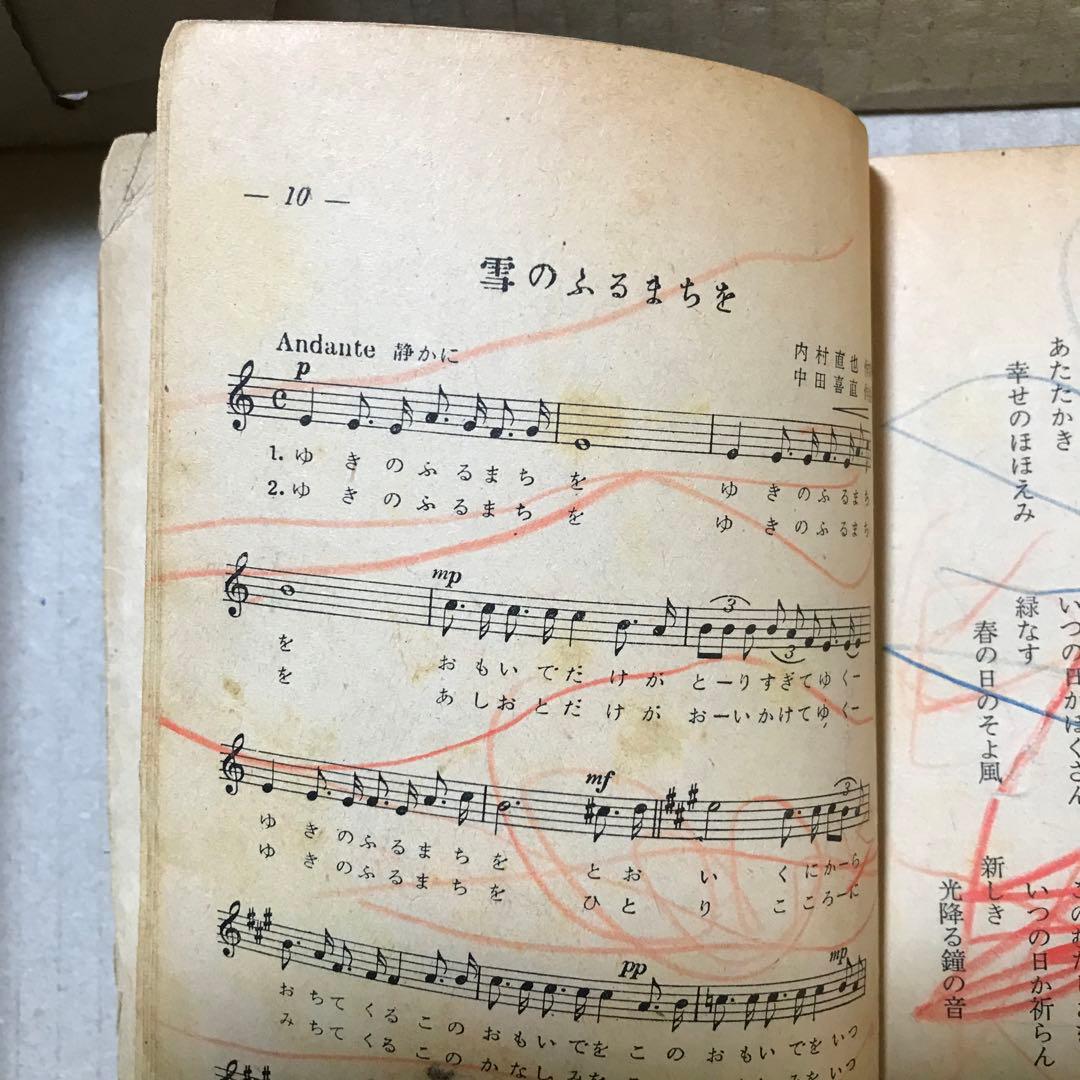 — 10 —
雪のふるまちを
Andante 静かに
内村直也
中田喜直
p
1. ゆきのふるまちを ゆきのふるまち
2. ゆきのふるまちを ゆきのふるまち
mp
3
3
を おもいでだけがとーりすぎてゆくー
を あしおとだけがおーいかけてゆくー
mf
3
ゆきのふるまちを とおいくにかーら
ゆきのふるまちを ひとりこころーに
pp
mp
おちてくるこのおもいでをこのおもいでをいつ
みちてくるこのかなしみを
をいつ
あたたかき
幸せのほほえみ
いつの日かほぐさん
緑なす
春の日のそよ風
新しき
いつの日か祈らん
光降る鐘の音